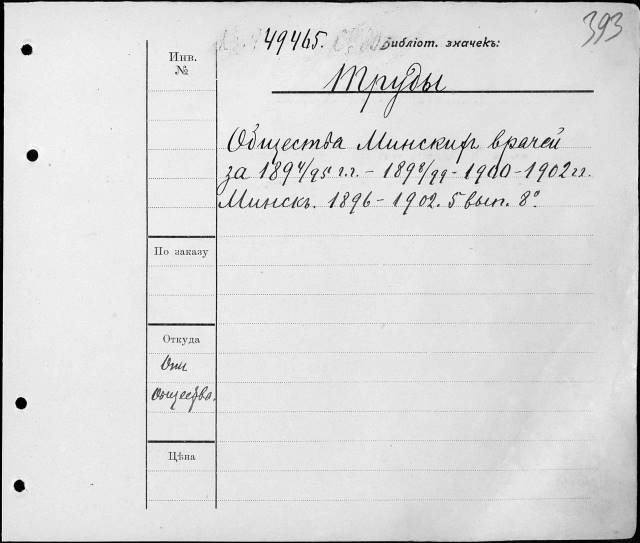 393
49465.
Библіот. значекъ:
Инв.
№
Труды
Общества Минских врачей
за 1894/95 г.г. - 1898/99 - 1900 - 1902 гг.
Минскъ. 1896 - 1902. 5 вып. 8°
По заказу
Откуда
От
Общества.
Цѣна